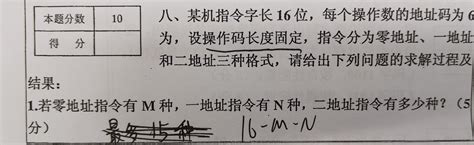 本题分数 10
得 分
八、某机指令字长 16 位，每个操作数的地址码为 6
为，设操作码长度固定，指令分为零地址、一地址
和二地址三种格式，请给出下列问题的求解过程及
结果：
1.若零地址指令有 M 种，一地址指令有 N 种，二地址指令有多少种？（5
分）
最多 15 种 16-M-N